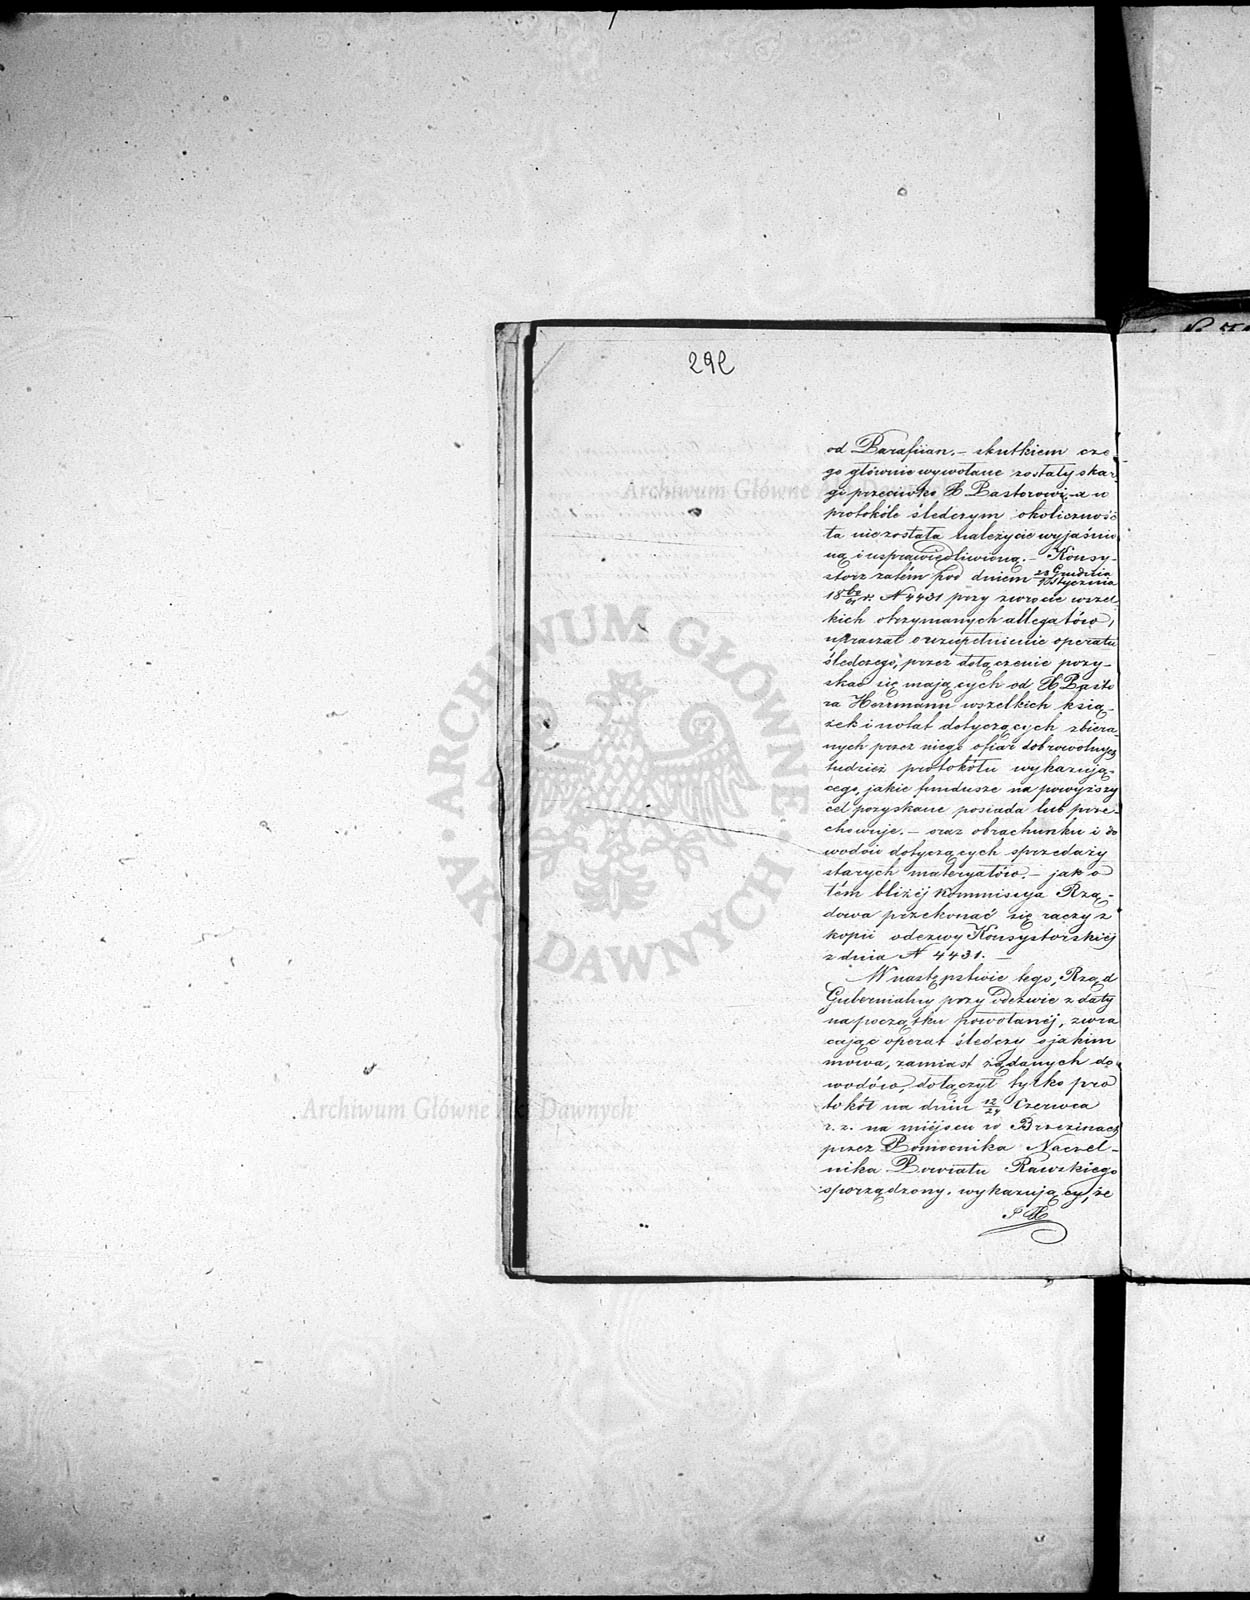 292
od Parafiian. – skutkiem cze
go głównie wywołane zostały skar-
gi przeciwko X Pastorowi, – a w
protokóle śledczym okoliczność
ta nie została należycie wyjaśnio
ną i usprawiedliwioną. – Konsy-
storz zatém pod dniem 28 Grudnia / Stycznia
18 r. N 4431 przy zwrocie wszel-
kich otrzymanych allegatów,
upraszał o uzupełnienie operatu
śledczego, przez dołączenie pozy-
skać się mających od X Pasto
ra Herrmann wszelkich ksią-
żek i notat dotyczących zbiera
nych przez niego ofiar dobrowolnych
tudzież protokółu wykazują-
cego, jakie fundusze na powyższy
cel pozyskane posiada lub prze-
chowuje. – oraz obrachunku i do
wodów dotyczących sprzedaży
starych materyałów. – jak o
tém bliżéj Kommissya Rzą-
dowa przekonać się raczy z
kopii odezwy Konsystorskiéj
z dnia N 4431. –
W następstwie tego, Rząd
Gubernialny przy Odezwie z daty
na początku powołanéj, zwra
cając operat śledczy o jakim
mowa, zamiast żądanych do
wodów, dołączył tylko pro
tokół na dniu 12/24 Czerwca
r. z. na miéjscu w Brzezinach
przez Pomocnika Naczel-
nika Powiatu Rawskiego
sporządzony, wykazujący, że
Archiwum Główne Akt Dawnych
ARCHIWUM GŁÓWNE · AKT DAWNYCH ·
Archiwum Główne Akt Dawnych